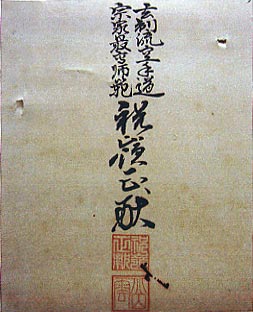 玄制流空手道
宗家最高師範
祝嶺正献